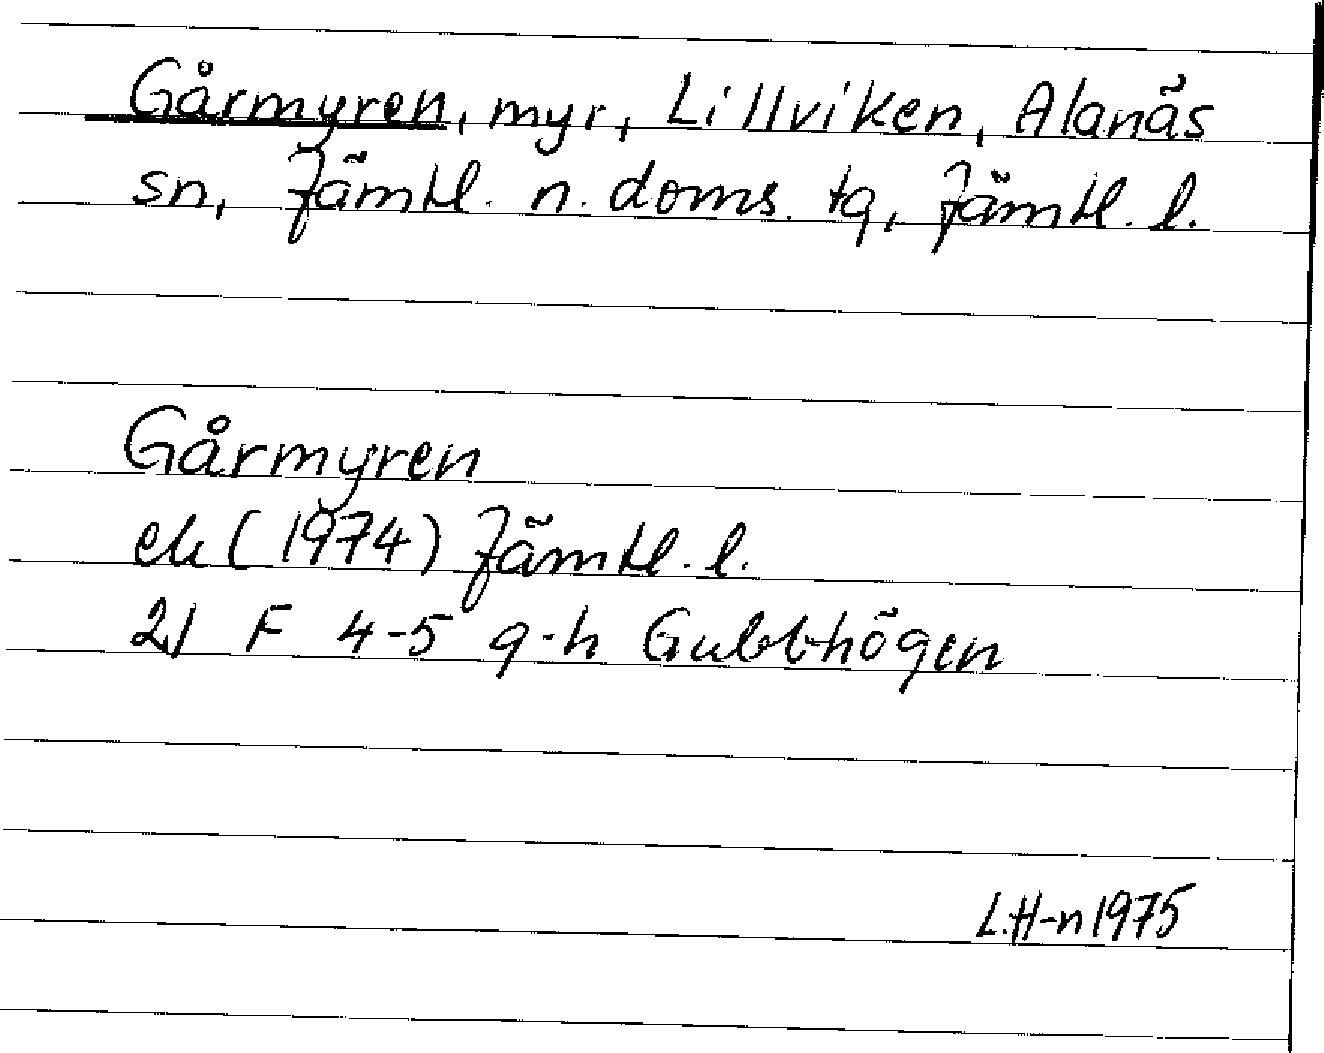 Gårmyren, myr, Lillviken, Alanäs
sn, Jämtl. n. doms. tg, Jämtl. l.
Gårmyren
ek (1974) Jämtl. l.
21 F 4-5 g-h Gubbhögen
L.H-n 1975